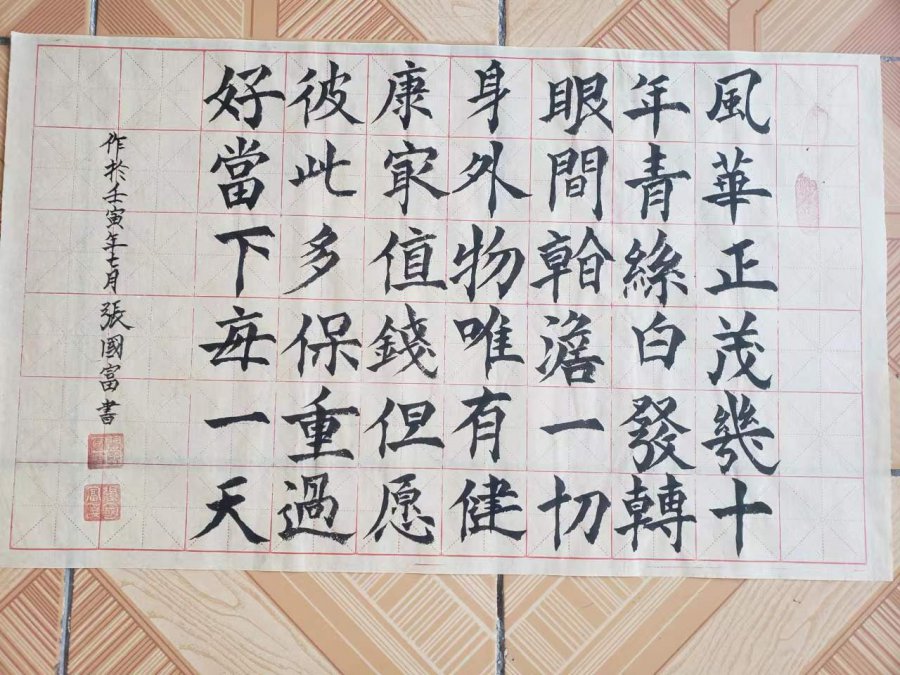 風華正茂幾十
年青絲白發轉
眼間澹一切
身外物唯有健
康㝡值錢但愿
彼此多保重過
好當下每一天
作於壬寅年七月張國富書